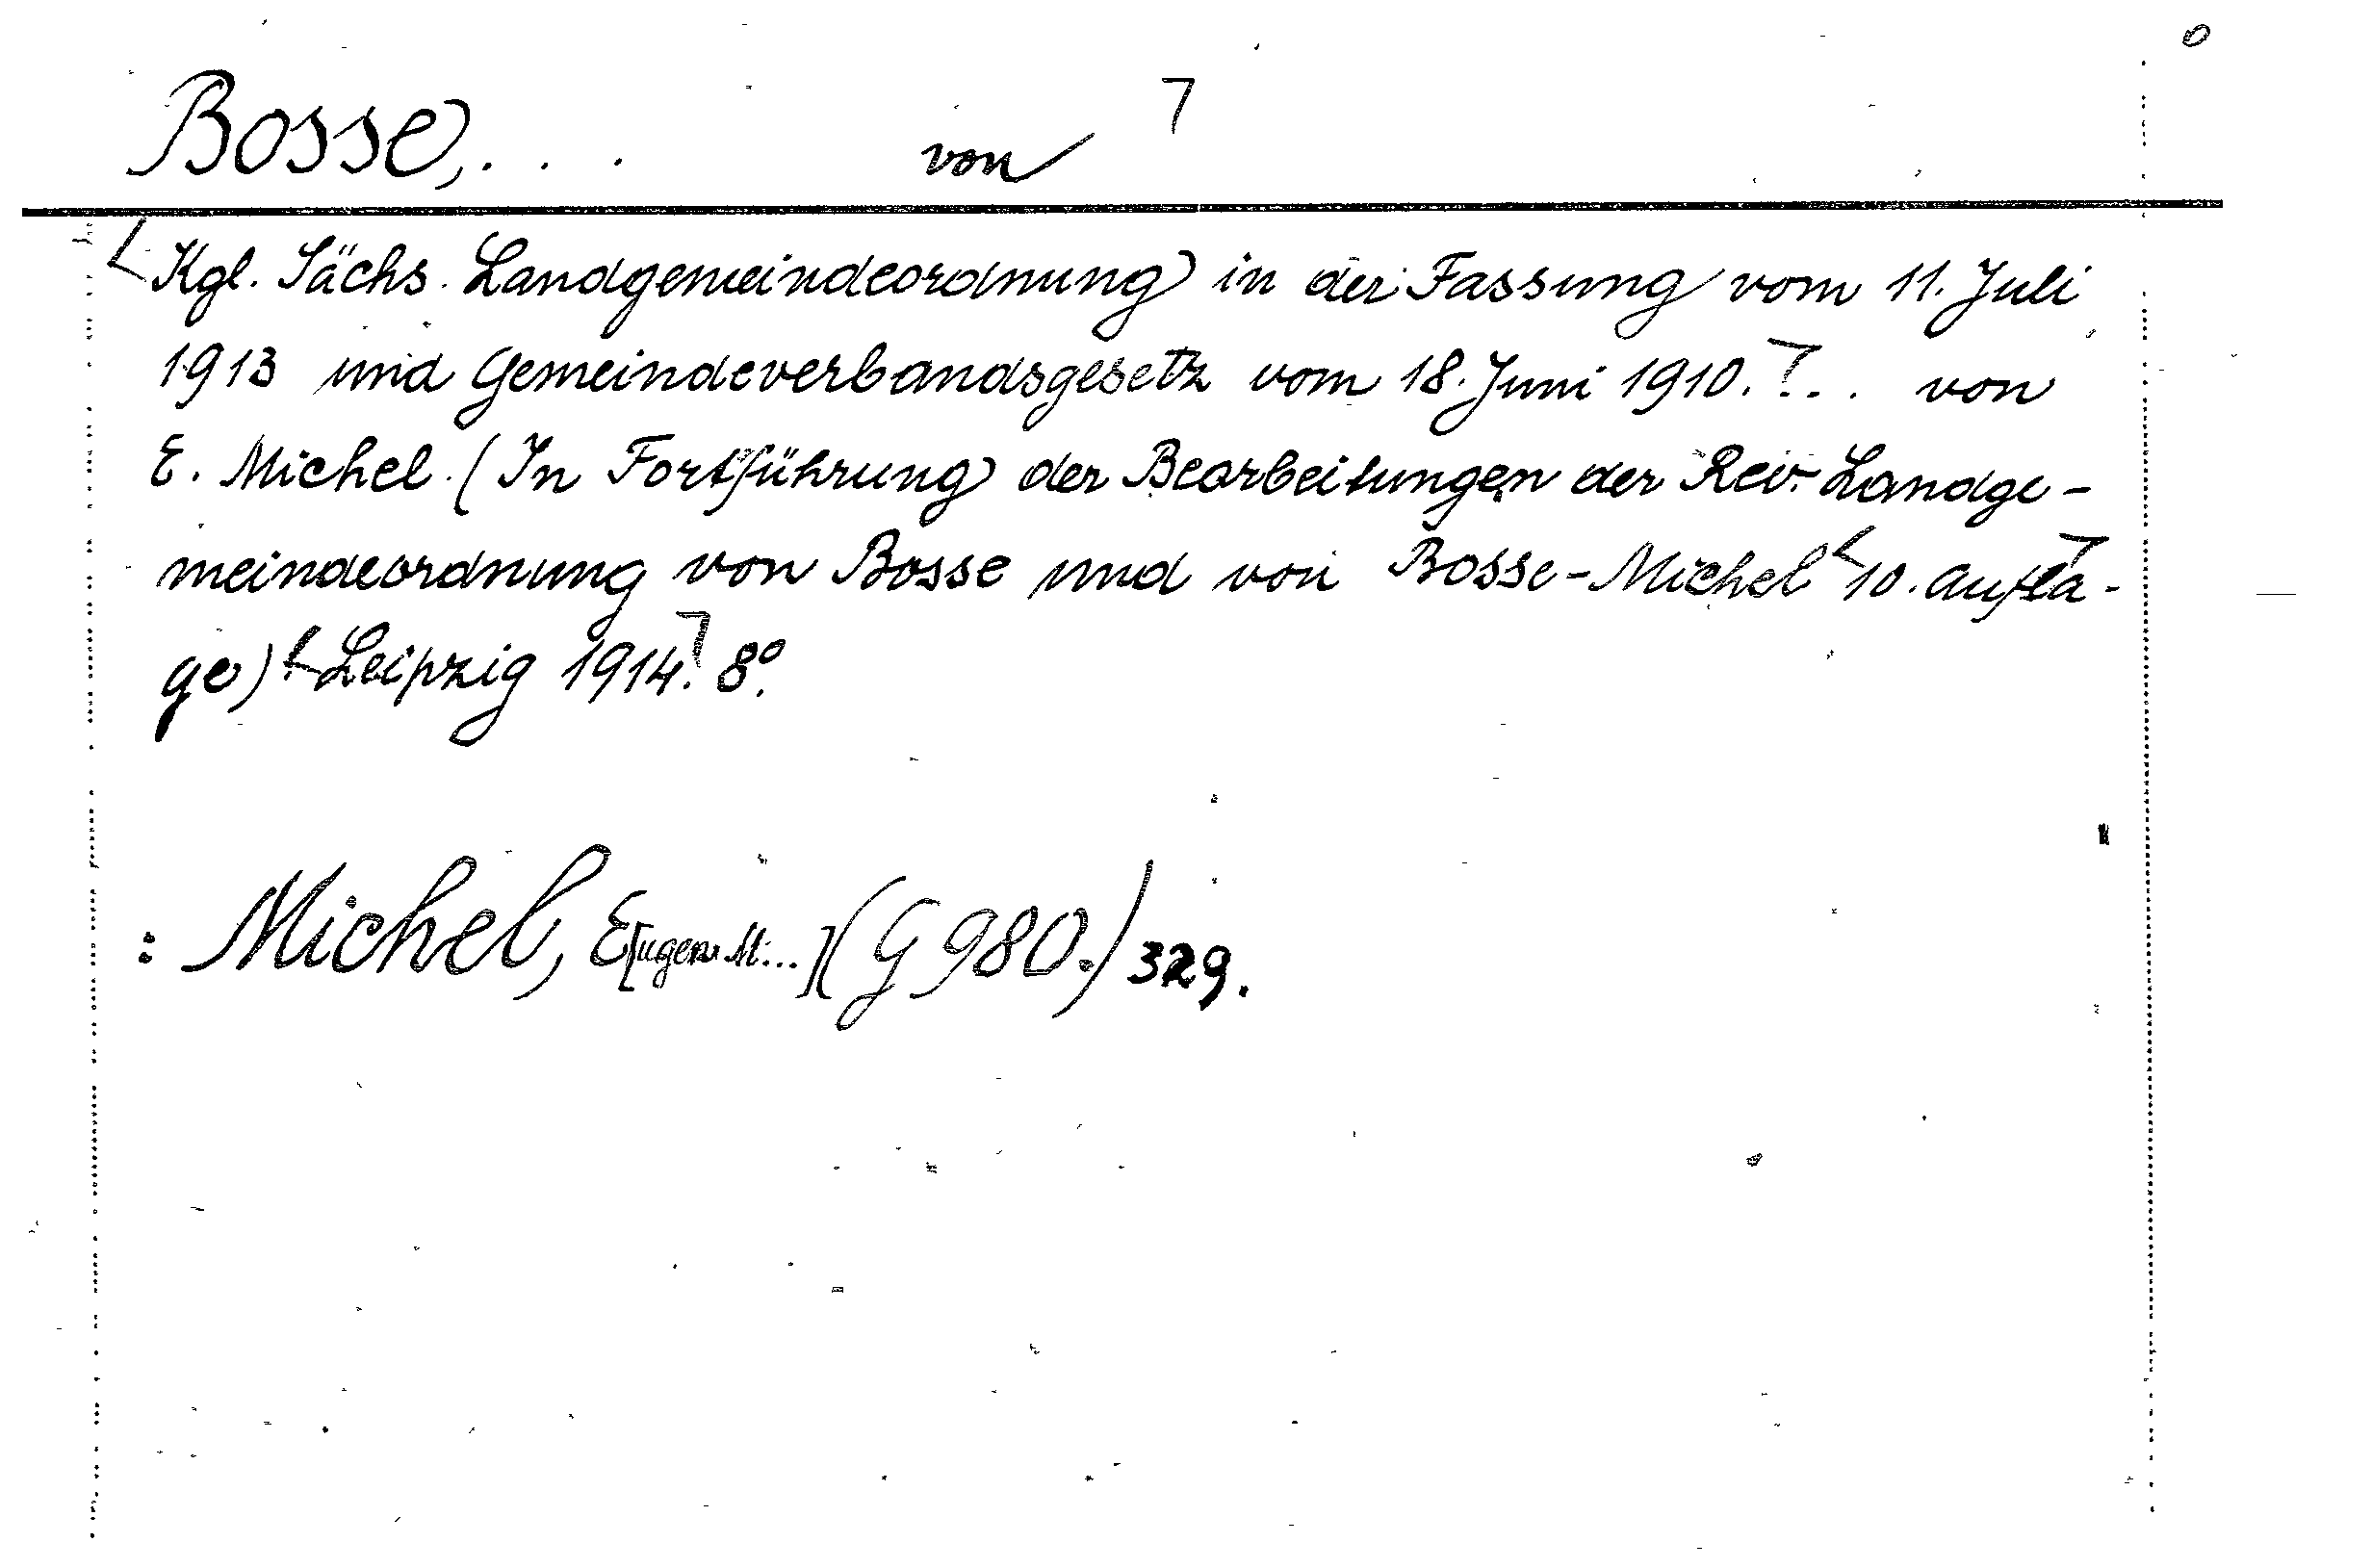 Bosse, . . . von
Kgl. Sächs. Landgemeindeordnung in der Fassung vom 11. Juli
1913 und Gemeindeverbandsgesetz vom 18. Juni 1910. . . . von
E. Michel. (In Fortführung der Bearbeitungen der Rev. Landge-
meindeordnung von Bosse und von Bosse-Michel 10. Aufla-
ge). Leipzig 1914. 8°.
: Michel, E[ugen M...] (G 980.) 329.